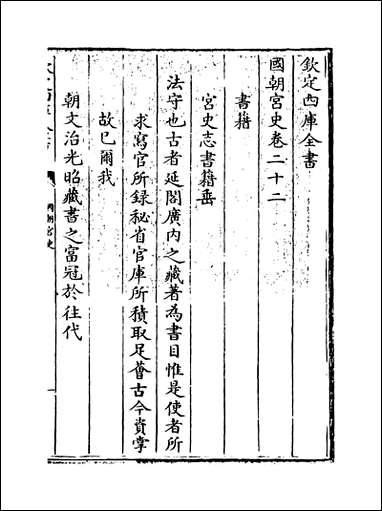 欽定四庫全書
國朝宮史卷二十二
書籍
宮史志書籍垂
法守也古者延閣廣内之藏著為書目惟是使者所
求寫官所録秘省官庫所積取足薈古今資掌
故已爾我
朝文治光昭藏書之富冠於往代
國朝宮史